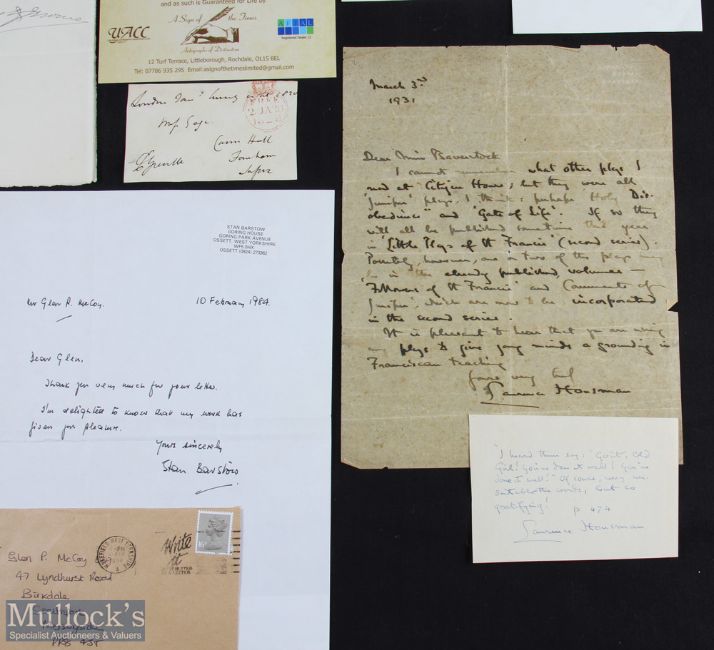 and as such is Guaranteed for Life by
UACC
A Sign of the Times
Autographs of Distinction
12 Turf Terrace, Littleborough, Rochdale, OL15 6EL
Tel: 07786 935 295 Email:asignofthetimeslimited@gmail.com
London
Farnham
STAN BARSTOW
GORING HOUSE
GORING PARK AVENUE
OSSETT, WEST YORKSHIRE
Mr Glen P. McCoy.
10 February 1984
Dear Glen,
Thank you very much for your letter.
I'm delighted to know that my work has
given you pleasure.
Yours sincerely
Stan Barstow
Glen P. McCoy
47 Lyndhurst Road
Birkdale
Southport
Merseyside
PR8 4JT
Write
it
March 3rd
1931
Dear Miss Baverstock
I cannot remember what other plays I
read at Citizen House, but they were all
'Juniper' plays, I think: perhaps Holy Dis-
obedience" and 'Gate of Life'. If so they
will all be published sometime this year
in 'Little Plays of St Francis' (second series).
Possibly, however, one or two of the plays may
be in the already published volumes —
'Followers of St Francis' and Comments of
Juniper', which are now to be incorporated
in the second series.
It is pleasant to hear that you are using
my plays to give young minds a grounding in
Franciscan teaching
Yours very truly
Laurence Housman
"I heard them say: 'Go it, Old
Girl! You've done it well! You've
done it well!' Of course, very un-
suitable the words, but so
gratifying!
p 474
Laurence Housman
Mullock's
Specialist Auctioneers & Valuers